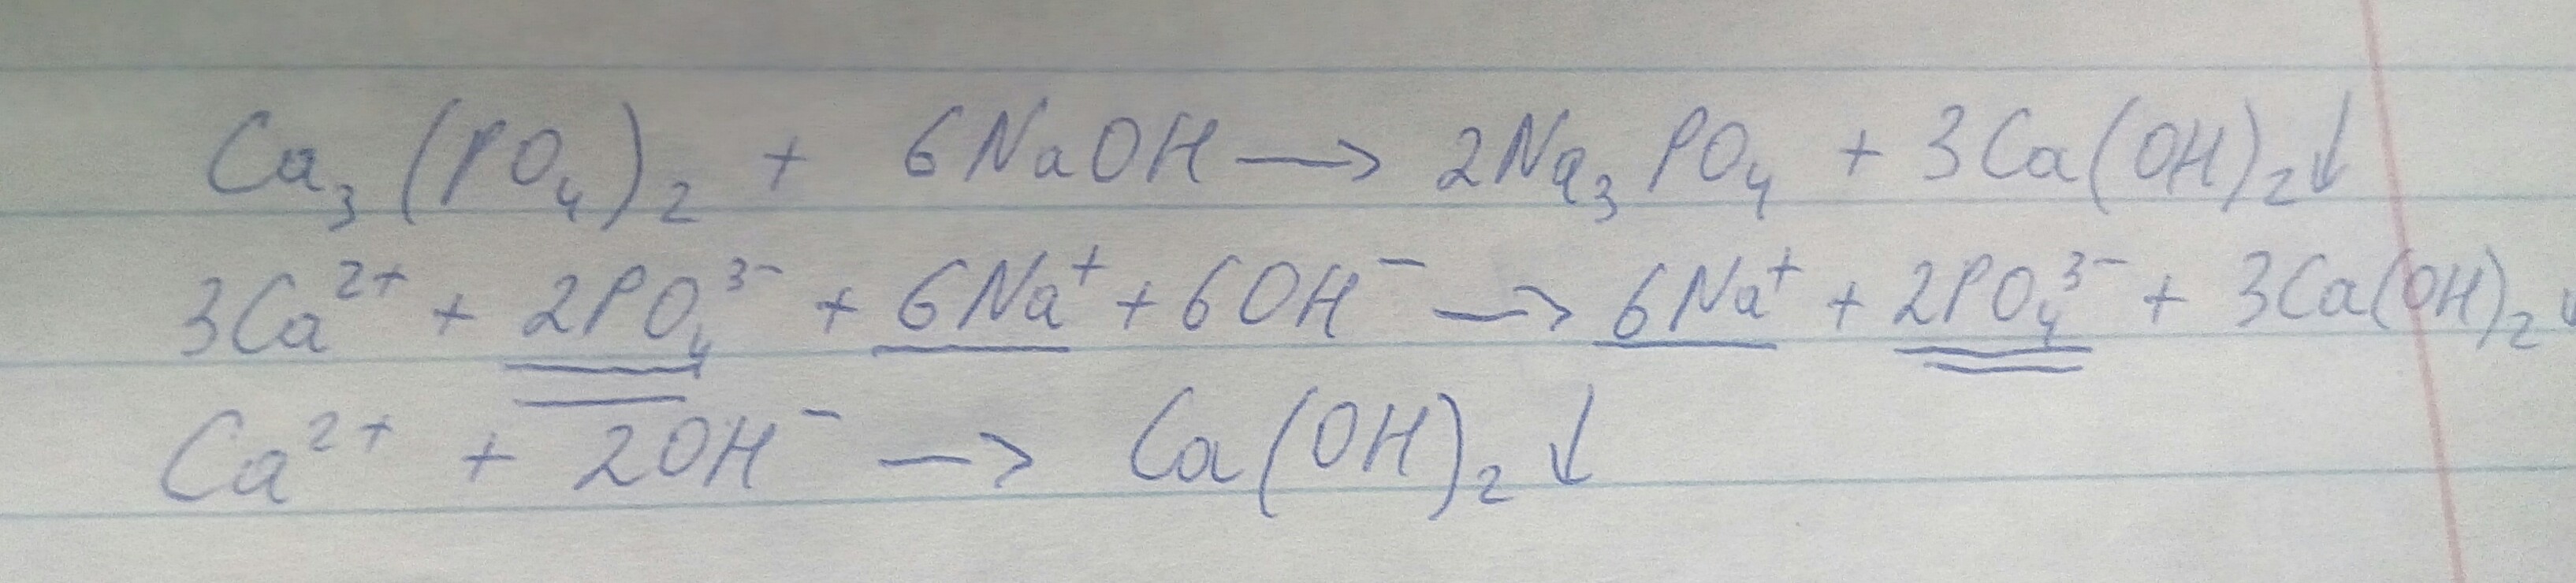 Ca₃(PO₄)₂ + 6NaOH → 2Na₃PO₄ + 3Ca(OH)₂↓
3Ca²⁺ + 2PO₄³⁻ + 6Na⁺ + 6OH⁻ → 6Na⁺ + 2PO₄³⁻ + 3Ca(OH)₂↓
Ca²⁺ + 2OH⁻ → Ca(OH)₂↓